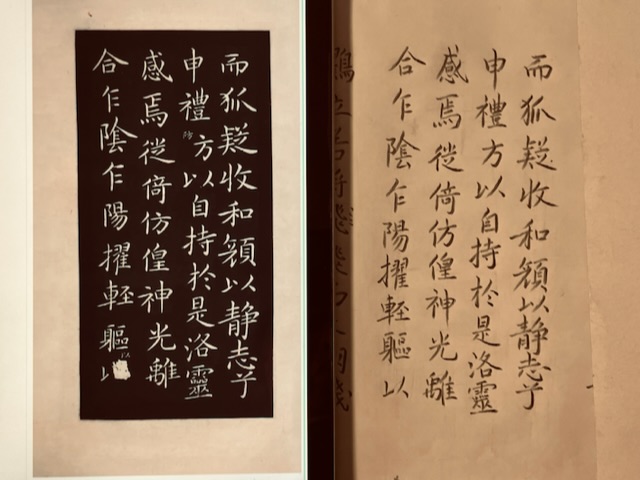 而狐疑收和顏以静志兮
申禮防方以自持於是洛靈
感焉徙倚仿偟神光離
合乍陰乍陽擢輕軀以
而狐疑收和顏以静志兮
申禮方以自持於是洛靈
感焉徙倚仿偟神光離
合乍陰乍陽擢輕軀以